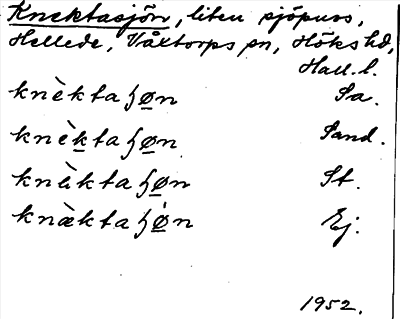 Knektasjön, liten sjöpuss,
Hellede, Våxtorps sn, Höks hd,
Hall. l.
knèktaɧøn Sa.
knèktaɧøn Sand.
knæ̀ktaɧøn St.
knæ̀ktaɧøn Ej.
1952.